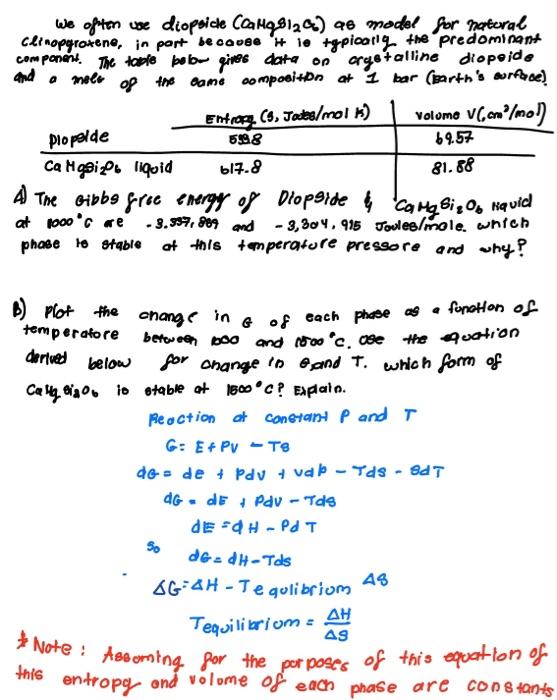 We often use diopside (CaMgSi2O6) as model for natural
clinopyroxene, in part because it is typically the predominant
component. The table below gives data on crystalline diopside
and a melt of the same composition at 1 bar (Earth's surface)
Entropy (S, Joules/mol K) Volume V(,cm³/mol)
Diopside 599.8 69.57
CaMgSi2O6 liquid 617.8 81.88
A) The Gibbs free energy of Diopside & CaMgSi2O6 liquid
at 1000°C are -3.337,889 and -3,304,915 Joules/mole. which
phase is stable at this temperature pressure and why?
B) Plot the change in G of each phase as a function of
temperature between 1000 and 1500°C. use the equation
derived below for change in G and T. which form of
CaMgSi2O6 is stable at 1500°C? Explain.
Reaction at constant P and T
G= E+PV -TS
dG = de + Pdv + vdp - Tds - SdT
dG = dE + Pdv - Tds
dE = dH - PdT
So
dG= dH-Tds
ΔG=ΔH -Tequlibrium ΔS
Tequilibrium = ΔH/ΔS
* Note: Assuming for the porposes of this equation of
this entropy and volume of each phase are constants